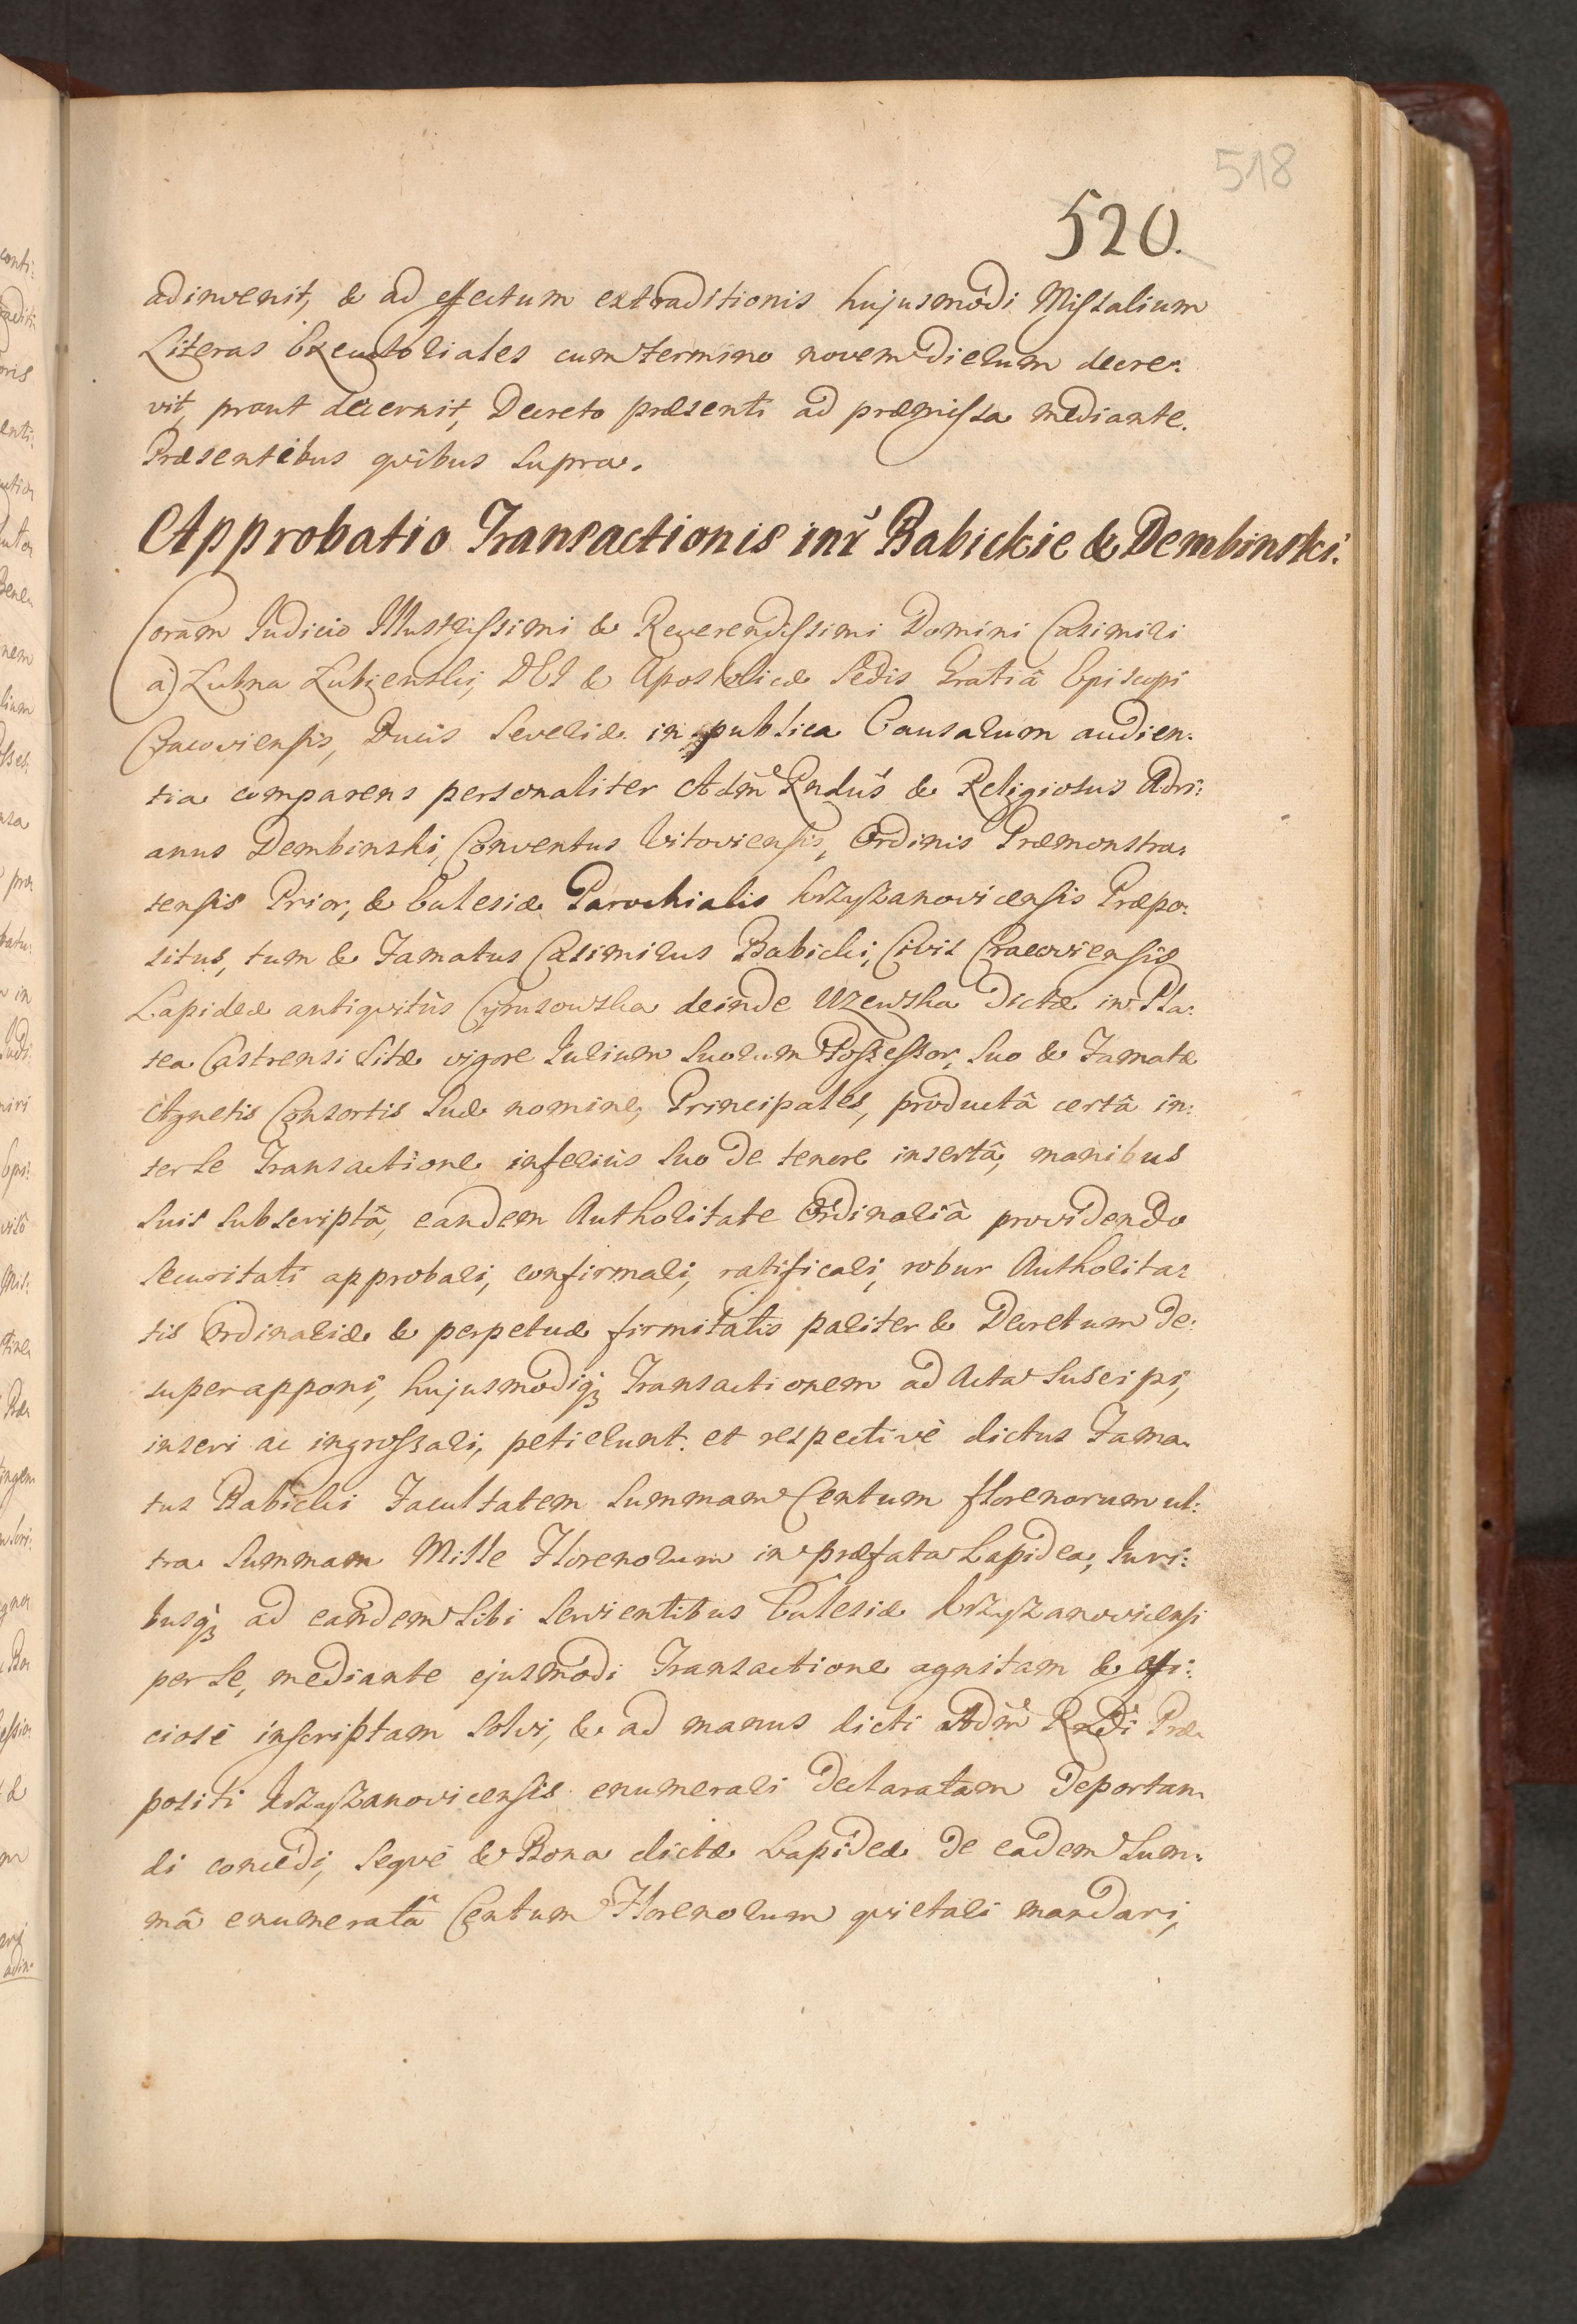 518
520.
adinvenit, & ad effectum extraditionis hujusmodi Missalium
Literas Executoriales cum termino novem dierum decre:
vit, prout decernit, Decreto præsenti ad præmissa mediante.
Præsentibus qvibus supra.
Approbatio Transactionis inr̃ Babickie & Dembinski.
Coram Judicio Illustrissimi & Reverendissimi Domini Casimiri
à Łubna Łubienski, DEI & Apostolicæ Sedis Gratiâ Episcopi
Cracoviensis, Ducis Severiæ in publica Causarum audien:
tia comparens personaliter Adm̃ Rndus & Religiosus Adri:
anus Dembinski, Conventus Vitoviensis, Ordinis Præmonstra:
tensis Prior, & Ecclesiæ Parochialis Krzyszanovicensis Præpo:
situs, tum & Famatus Casimirus Babicki, Civis Cracoviensis
Lapideæ antiqvitùs Cyrusowska deinde Uzewska dictæ in Pla:
tea Castrensi sitæ vigore Jurium suorum Possessor, suo & Famatæ
Agnetis Consortis suæ nomine, Principales, productâ certâ in:
ter se Transactione inferiùs suo de tenore insertâ, manibus
suis subscriptâ, eandem Authoritate Ordinariâ providendo
securitati approbari, confirmari, ratificari, robur Authorita:
tis Ordinariæ & perpetuæ firmitatis pariter & Decretum de:
super apponi, hujusmodiq; Transactionem ad Acta suscipi,
inseri ac ingrossari, petierunt. et respectivè dictus Fama:
tus Babicki Facultatem summam Centum florenorum ul:
tra summam Mille Florenorum in præfata Lapidea, Juri:
busq; ad eandem sibi servientibus Ecclesiæ Krzyszanovicensi
per se, mediante ejusmodi Transactione agnitam & offi:
ciosè inscriptam solvi, & ad manus dicti Adm̃ Rndi Præ:
positi Krzyszanovicensis enumerari declaratam deportan:
di concedi, seqve & Bona dictæ Lapideæ de eadem Sum:
mâ enumeratâ Centum Florenorum qvietari mandari,